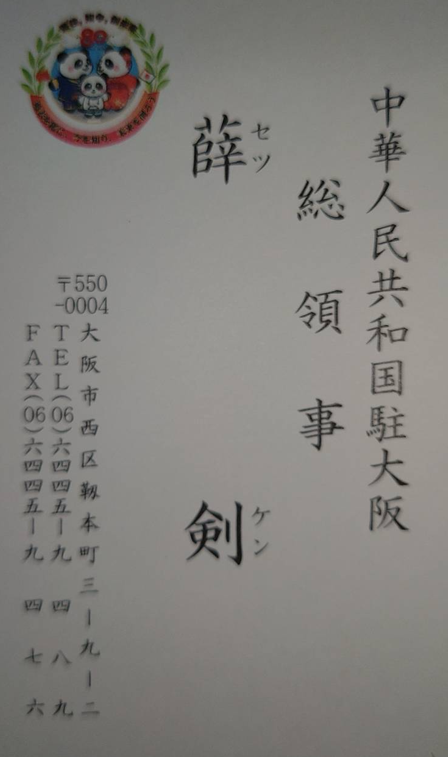 中華人民共和国駐大阪
総領事
薛剣
セツ ケン
〒550
-0004
大阪市西区靱本町三ー九ー二
TEL(06)六四四五ー九四八九
FAX(06)六四四五ー九四七六